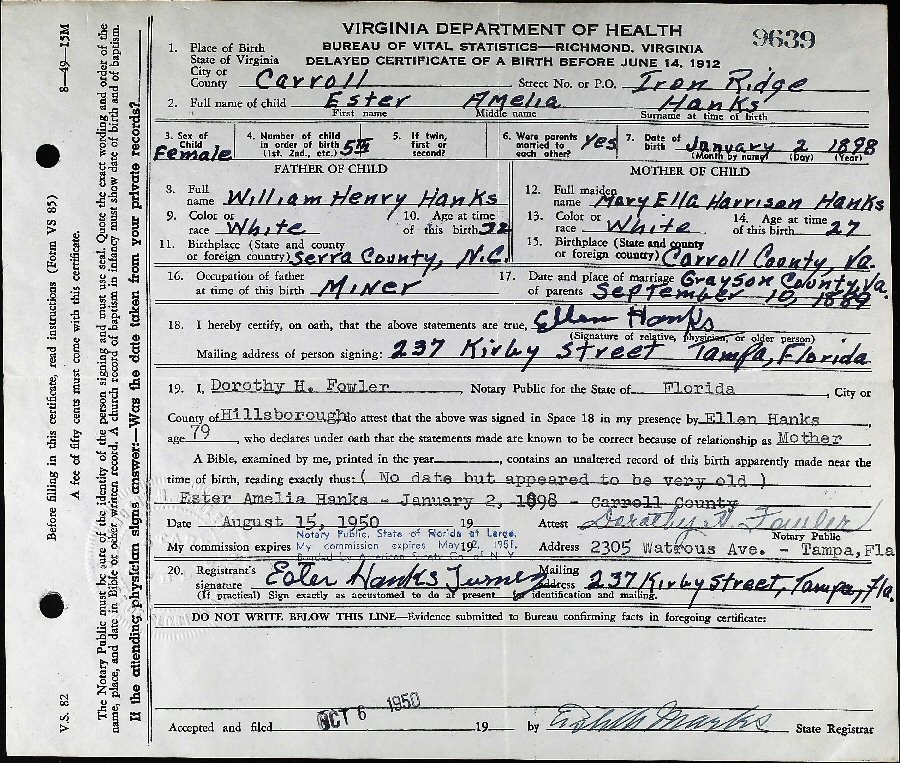 VIRGINIA DEPARTMENT OF HEALTH
BUREAU OF VITAL STATISTICS—RICHMOND, VIRGINIA
DELAYED CERTIFICATE OF A BIRTH BEFORE JUNE 14, 1912
9639
1. Place of Birth
State of Virginia
City or County Carroll Street No. or P.O. Iron Ridge
2. Full name of child Ester Amelia Hanks
First name Middle name Surname at time of birth
3. Sex of Child Female 4. Number of child in order of birth (1st. 2nd., etc.) 5th 5. If twin, first or second? 6. Were parents married to each other? Yes 7. Date of birth January 2 1898
(Month by name) (Day) (Year)
FATHER OF CHILD MOTHER OF CHILD
8. Full name William Henry Hanks 12. Full maiden name Mary Ella Harrison Hanks
9. Color or race White 10. Age at time of this birth 32 13. Color or race White 14. Age at time of this birth 27
11. Birthplace (State and county or foreign country) Serra County, N.C. 15. Birthplace (State and county or foreign country) Carroll County, Va.
16. Occupation of father at time of this birth Miner 17. Date and place of marriage of parents Grayson County, Va. September 10, 1889
18. I hereby certify, on oath, that the above statements are true, Ellen Hanks
(Signature of relative, physician, or older person)
Mailing address of person signing: 237 Kirby Street Tampa, Florida
19. I, Dorothy H. Fowler, Notary Public for the State of Florida, City or
County of Hillsborough do attest that the above was signed in Space 18 in my presence by Ellen Hanks,
age 79, who declares under oath that the statements made are known to be correct because of relationship as Mother
A Bible, examined by me, printed in the year , contains an unaltered record of this birth apparently made near the
time of birth, reading exactly thus: ( No date but appeared to be very old )
Ester Amelia Hanks - January 2, 1898 - Carroll County
Date August 15, 1950 19 Attest Dorothy H. Fowler
Notary Public
Notary Public, State of Florida at Large.
My commission expires My commission expires May 2, 1951. 19 Address 2305 Watrous Ave. - Tampa, Fla
20. Registrant's signature Ester Hanks Turner Mailing address 237 Kirby Street, Tampa, Fla.
(If practical) Sign exactly as accustomed to do at present for identification and mailing.
DO NOT WRITE BELOW THIS LINE—Evidence submitted to Bureau confirming facts in foregoing certificate:
Accepted and filed OCT 6 1950 19 by State Registrar
8—49—15M
Before filling in this certificate, read instructions (Form VS 85)
A fee of fifty cents must come with this certificate.
V.S. 82
The Notary Public must be sure of the identity of the person signing and must use seal. Quote the exact wording and order of the
name, place, and date in Bible or other written record. A church record of baptism in infancy must show date of birth and of baptism.
If the attending physician signs answer:—Was the date taken from your private records?